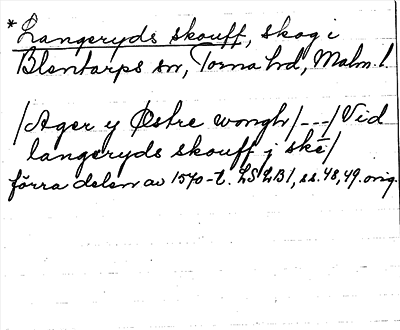 *Langeryds skouff, skog i
Blentarps sn, Torna hd, Malm. l.
/Ager y Østre wongh/---/Vid
langeryds skouff j skē/
förra delen av 1570-t. LSLB1, ss. 48, 49. orig.